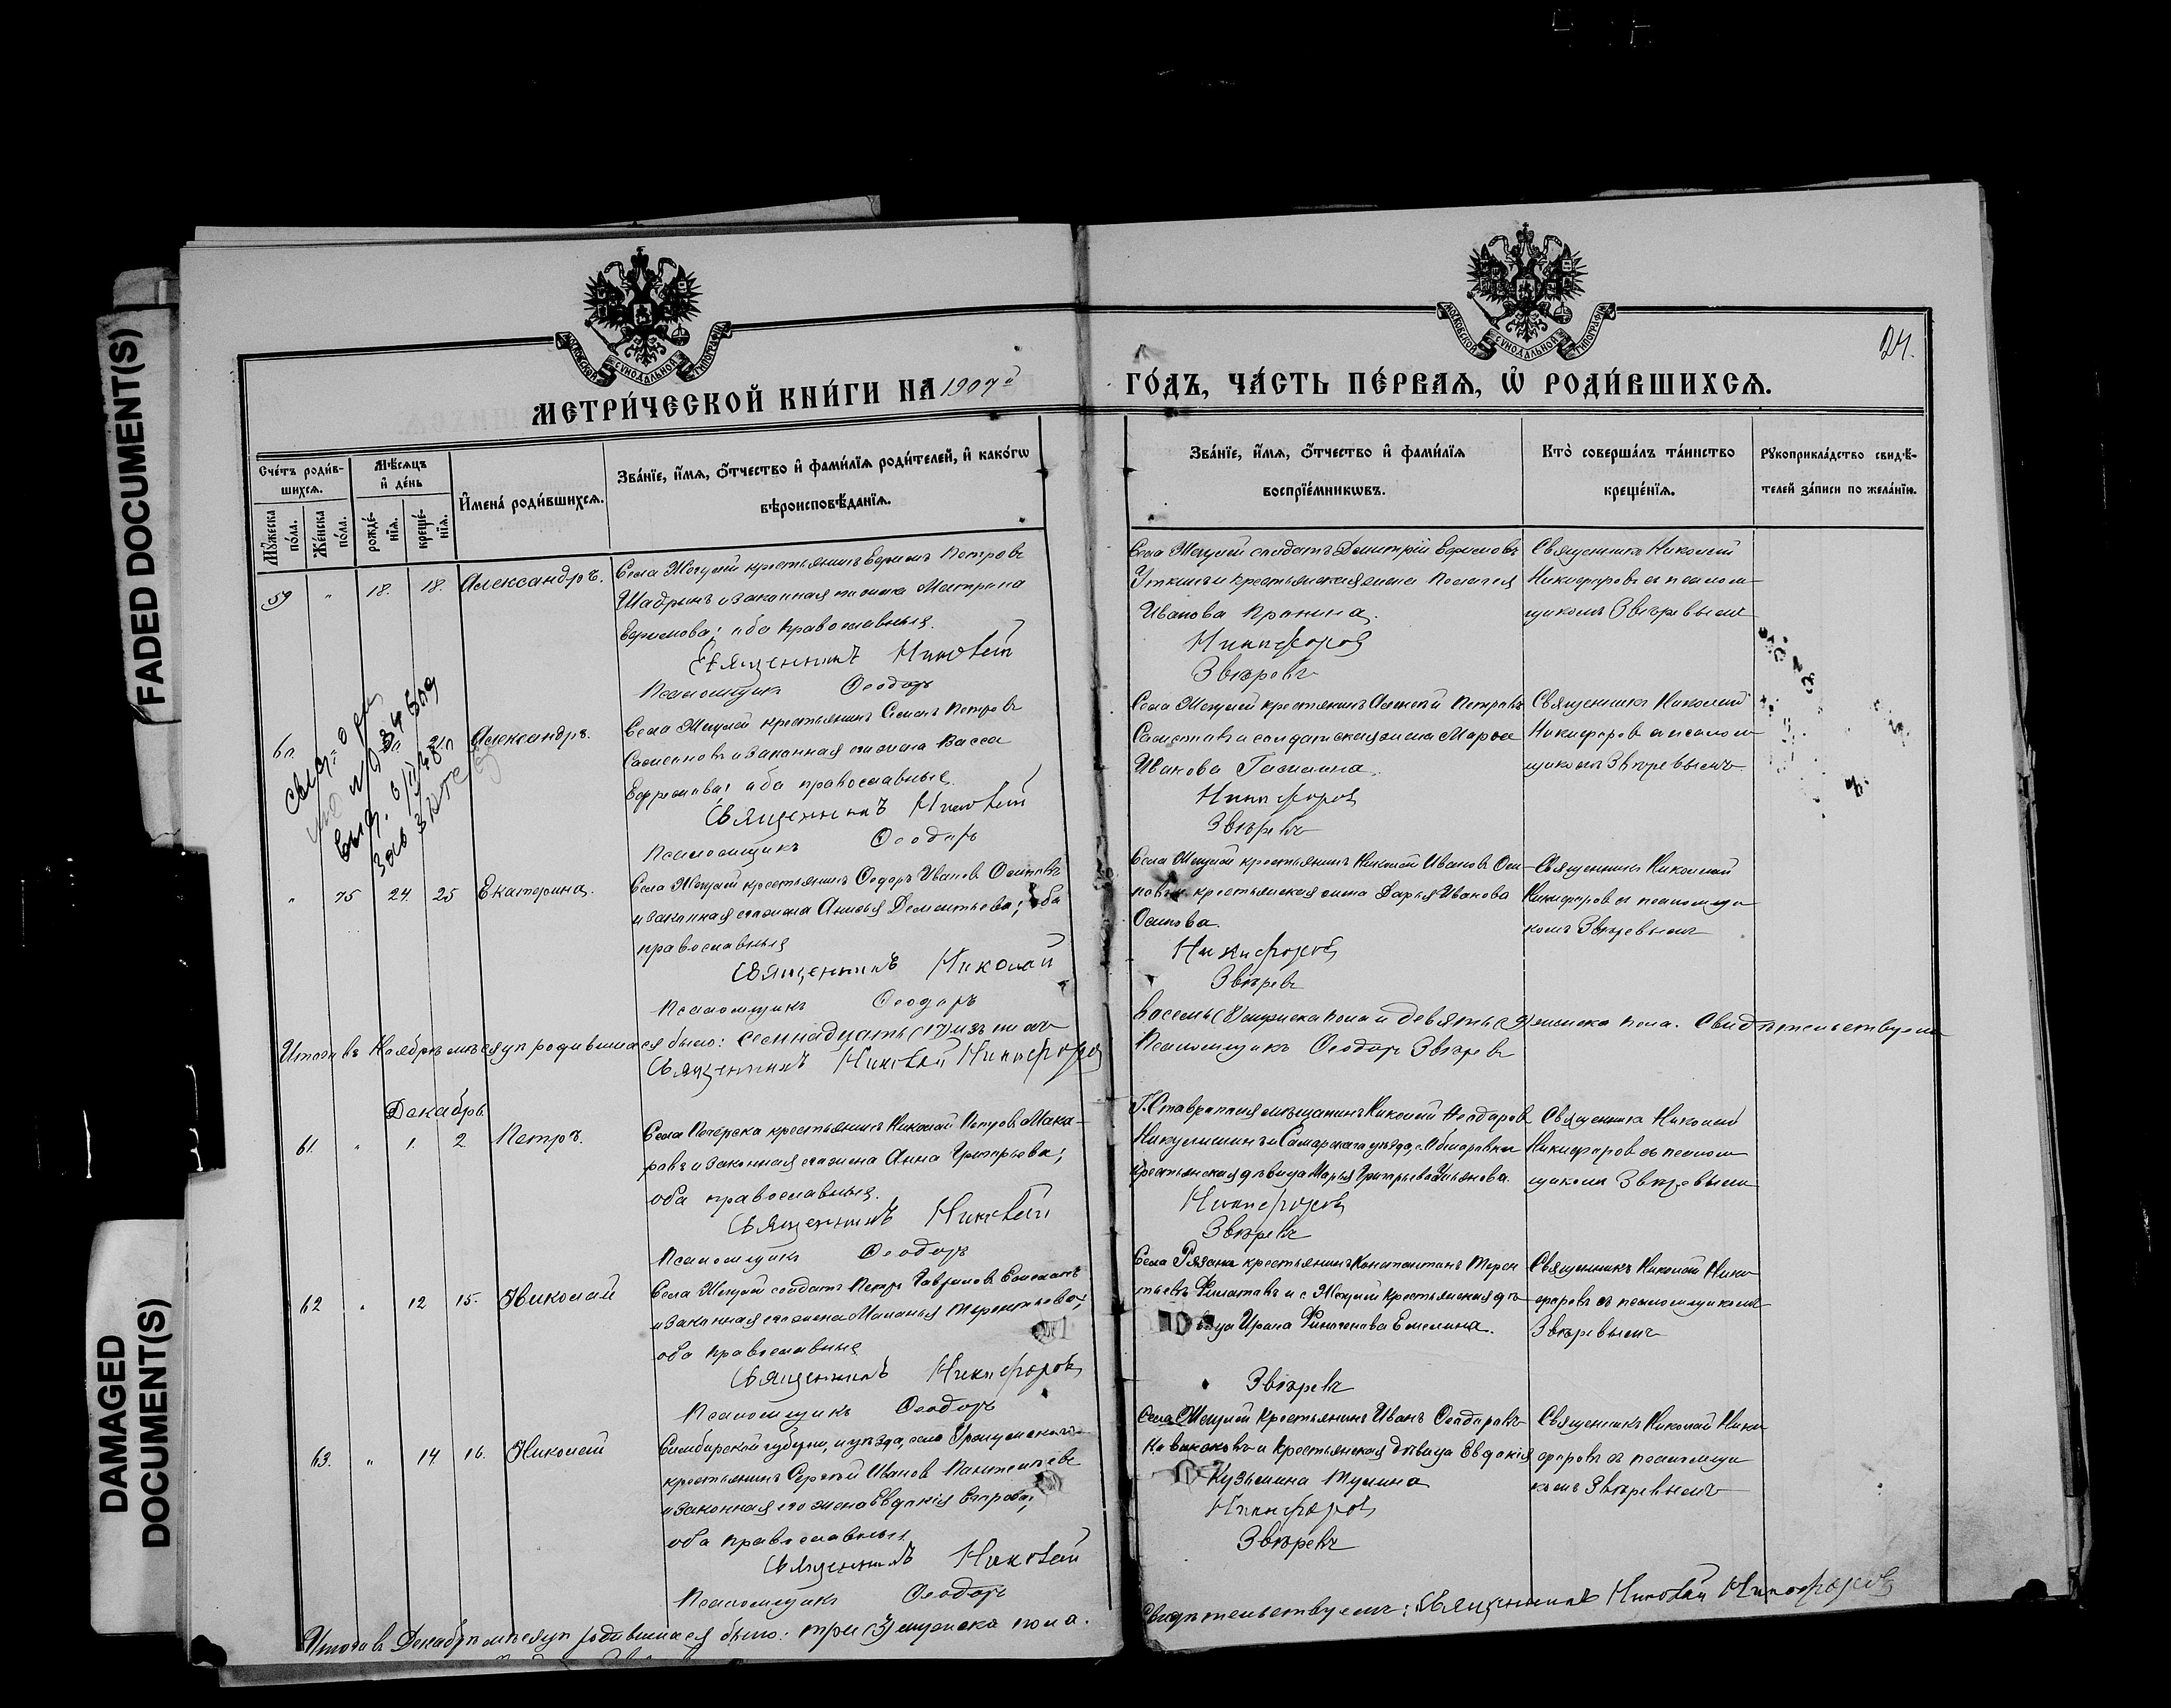 FADED DOCUMENT(S)
DAMAGED
DOCUMENT(S)
МОСКОВСКОЙ СѴНОДАЛЬНОЙ ТИПОГРАФІИ
МОСКОВСКОЙ СѴНОДАЛЬНОЙ ТИПОГРАФІИ
24.
МЕТРИ́ЧЕСКОЙ КНИ́ГИ НА 1907й
ГО́ДЪ, ЧА́СТЬ ПЕ́РВАѦ, Ѽ РОДИ́ВШИХСѦ.
Сче́тъ роди́в-
шихсѧ.
Мѣ́сѧцъ
и҆ де́нь
И҆мена́ роди́вшихсѧ.
Зва́нїе, и҆́мѧ, ѻ҆́тчество и҆ фами́лїѧ роди́телей, и҆ како́гѡ
вѣроисповѣ́данїѧ.
Мꙋ́жеска
по́ла.
Же́нска
по́ла.
рожде́-
нїѧ.
креще́-
нїѧ.
Зва́нїе, и҆́мѧ, ѻ҆́тчество и҆ фами́лїѧ
воспрїе́мникѡвъ.
Кто̀ соверша́лъ та́инство
креще́нїѧ.
Рꙋкоприкла́дство свидѣ́-
телей за́писи по жела́нїю.
59 " 18. 18. Александръ.
Села Жигулей крестьянинъ Ефремъ Петровъ
Шадринъ и законная его жена Матрона
Ефремова; оба православные.
Священникъ Николай
Псаломщикъ Ѳеодоръ
Села Жигулей солдатъ Димитрій Ефремовъ
Уткинъ и крестьянская жена Пелагея
Иванова Пронина.
Никифоровъ
Звѣревъ
Священникъ Николай
Никифоровъ съ псалом-
щикомъ Звѣревымъ
60 21. Александръ.
Села Жигулей крестьянинъ Семенъ Петровъ
и законная его жена Васса
Ефремова; оба православные.
Священникъ Николай
Псаломщикъ Ѳеодоръ
Села Жигулей крестьянинъ Алексей Петровъ
и солдатская жена Марья
Иванова
Никифоровъ
Звѣревъ
Священникъ Николай
Никифоровъ съ псалом-
щикомъ Звѣревымъ
" 75 24. 25 Екатерина.
Села Жигулей крестьянинъ Ѳедоръ Ивановъ Осиповъ
и законная его жена Анисья Дементьева; оба
православные
Священникъ Николай
Псаломщикъ Ѳеодоръ
Села Жигулей крестьянинъ Николай Ивановъ Оси-
повъ и крестьянская жена Дарья Иванова
Осипова.
Никифоровъ
Звѣревъ
Священникъ Николай
Никифоровъ съ псаломщи
комъ Звѣревымъ
Итого въ Ноябрѣ мѣсяцѣ родившихся было: семнадцать (17) изъ нихъ
восемь (8) мужска пола и девять (9) женска пола. Свидѣтельствуемъ
Священникъ Николай Никифоровъ
Псаломщикъ Ѳеодоръ Звѣревъ
Декабрь.
61. " 1. 2 Петръ.
Села Печерска крестьянинъ Николай Петровъ Мака-
ровъ и законная его жена Анна Григорьева;
оба православные.
Священникъ Николай
Псаломщикъ Ѳеодоръ
Г. Ставрополя мѣщанинъ Николай Ѳеодоровъ
Никулишинъ и Самарскаго уѣзда, с. Обшаровки
крестьянская дѣвица Марья Григорьева Ульянова.
Никифоровъ
Звѣревъ
Священникъ Николай
Никифоровъ съ псалом-
щикомъ Звѣревымъ
62 " 12 15. Николай
Села Жигулей солдатъ Петръ Гавриловъ
и законная его жена Маланья Терентьева;
оба православные
Священникъ Никифоровъ
Псаломщикъ Ѳеодоръ
Села Рязана крестьянинъ Константинъ Терен
тьевъ Филатовъ и с. Жигулей крестьянская дѣ-
вица Ирина Емелина.
Звѣревъ
Священникъ Николай Ники
форовъ съ псаломщикомъ
Звѣревымъ
63. " 14 16. Николай
Симбирской губерніи, и уѣзда, села
крестьянинъ Сергѣй Ивановъ Пантелѣевъ
и законная его жена Евдокія Егорова;
оба православные
Священникъ Николай
Псаломщикъ Ѳеодоръ
Села Жигулей крестьянинъ Иванъ Ѳеодоровъ
и крестьянская дѣвица Евдокія
Кузьмина
Никифоровъ
Звѣревъ
Священникъ Николай Ники
форовъ съ псаломщи
комъ Звѣревымъ
Итого въ Декабрѣ мѣсяцѣ родившихся было: три (3) мужска пола.
Свидѣтельствуемъ: Священникъ Николай Никифоровъ